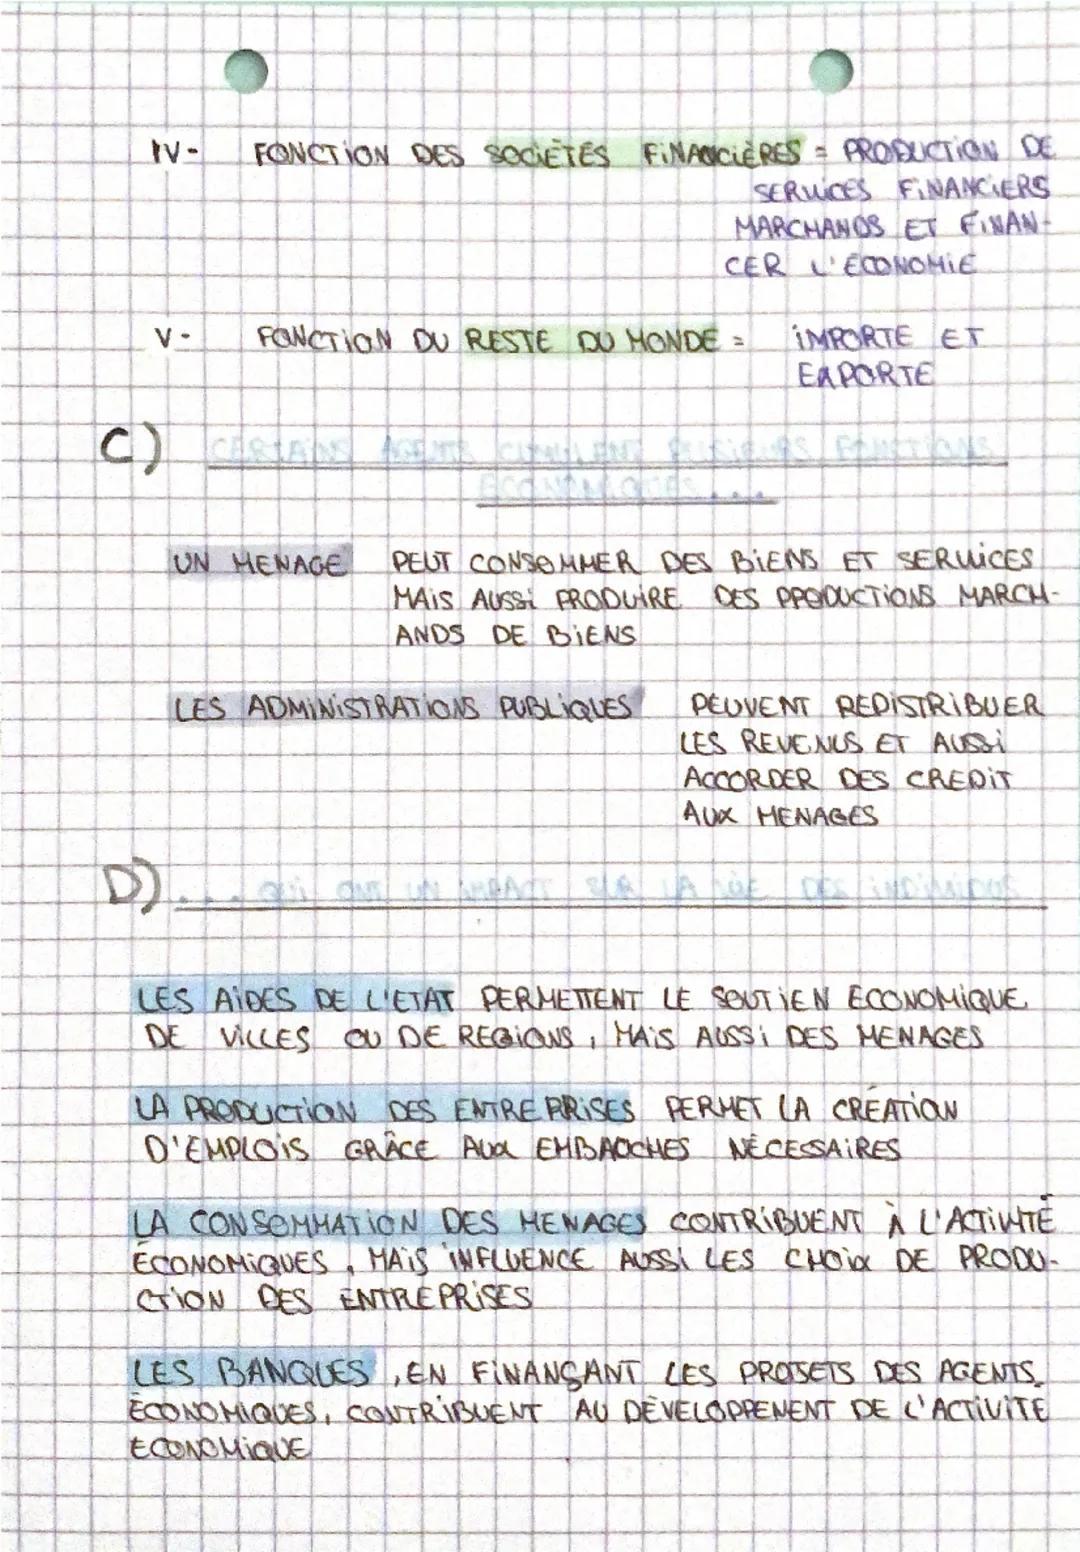 IV- FONCTION DES SOCIÉTÉS FINANCIÈRES = PRODUCTION DE
SERVICES FINANCIERS
MARCHANDS ET FINAN-
CER L'ECONOMIE
V- FONCTION DU RESTE DU MONDE = IMPORTE ET
EXPORTE
C) CERTAINS AGENTS CUMULENT PLUSIEURS FONCTIONS
ECONOMIQUES...
UN MENAGE PEUT CONSOMMER DES BIENS ET SERVICES
MAIS AUSSI PRODUIRE DES PPODUCTIONS MARCH-
ANDS DE BIENS
LES ADMINISTRATIONS PUBLIQUES PEUVENT REDISTRIBUER
LES REVENUS ET AUSSI
ACCORDER DES CREDIT
AUX MENAGES
D) ... QUI ONT UN IMPACT SUR LA VIE DES INDIVIDUS
LES AIDES DE L'ETAT PERMETTENT LE SOUTIEN ECONOMIQUE
DE VILLES OU DE REGIONS, MAIS AUSSI DES MENAGES
LA PRODUCTION DES ENTREPRISES PERMET LA CRÉATION
D'EMPLOIS GRÂCE AUX EMBAOCHES NÉCESSAIRES
LA CONSOMMATION DES MENAGES CONTRIBUENT À L'ACTIVITÉ
ÉCONOMIQUES, MAIS INFLUENCE AUSSI LES CHOIX DE PRODU-
CTION DES ENTREPRISES
LES BANQUES, EN FINANÇANT LES PROJETS DES AGENTS
ÉCONOMIQUES, CONTRIBUENT AU DÉVELOPPEMENT DE L'ACTIVITÉ
ECONOMIQUE